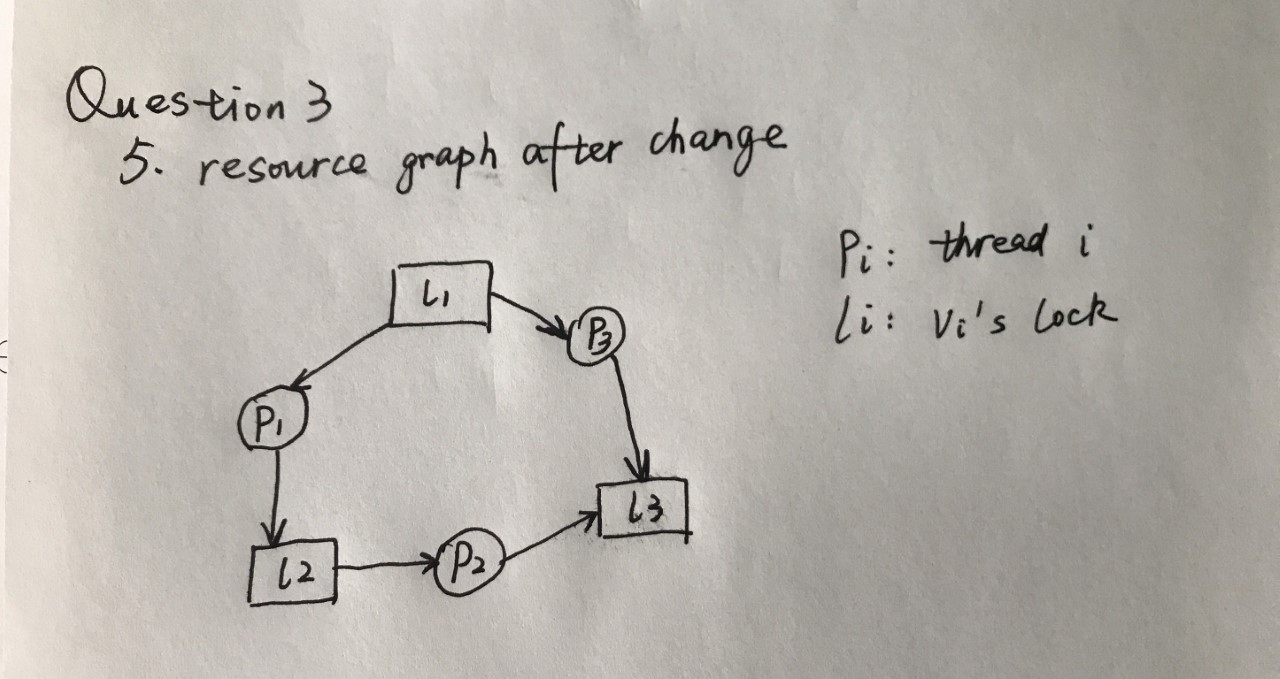 Question 3
5. resource graph after change
Pi: thread i
Li: Vi's lock
L1
P3
P1
L3
L2
P2